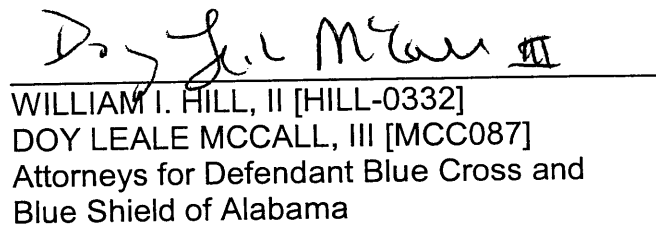 Doy Leale McCall III
WILLIAM I. HILL, II [HILL-0332]
DOY LEALE MCCALL, III [MCC087]
Attorneys for Defendant Blue Cross and
Blue Shield of Alabama